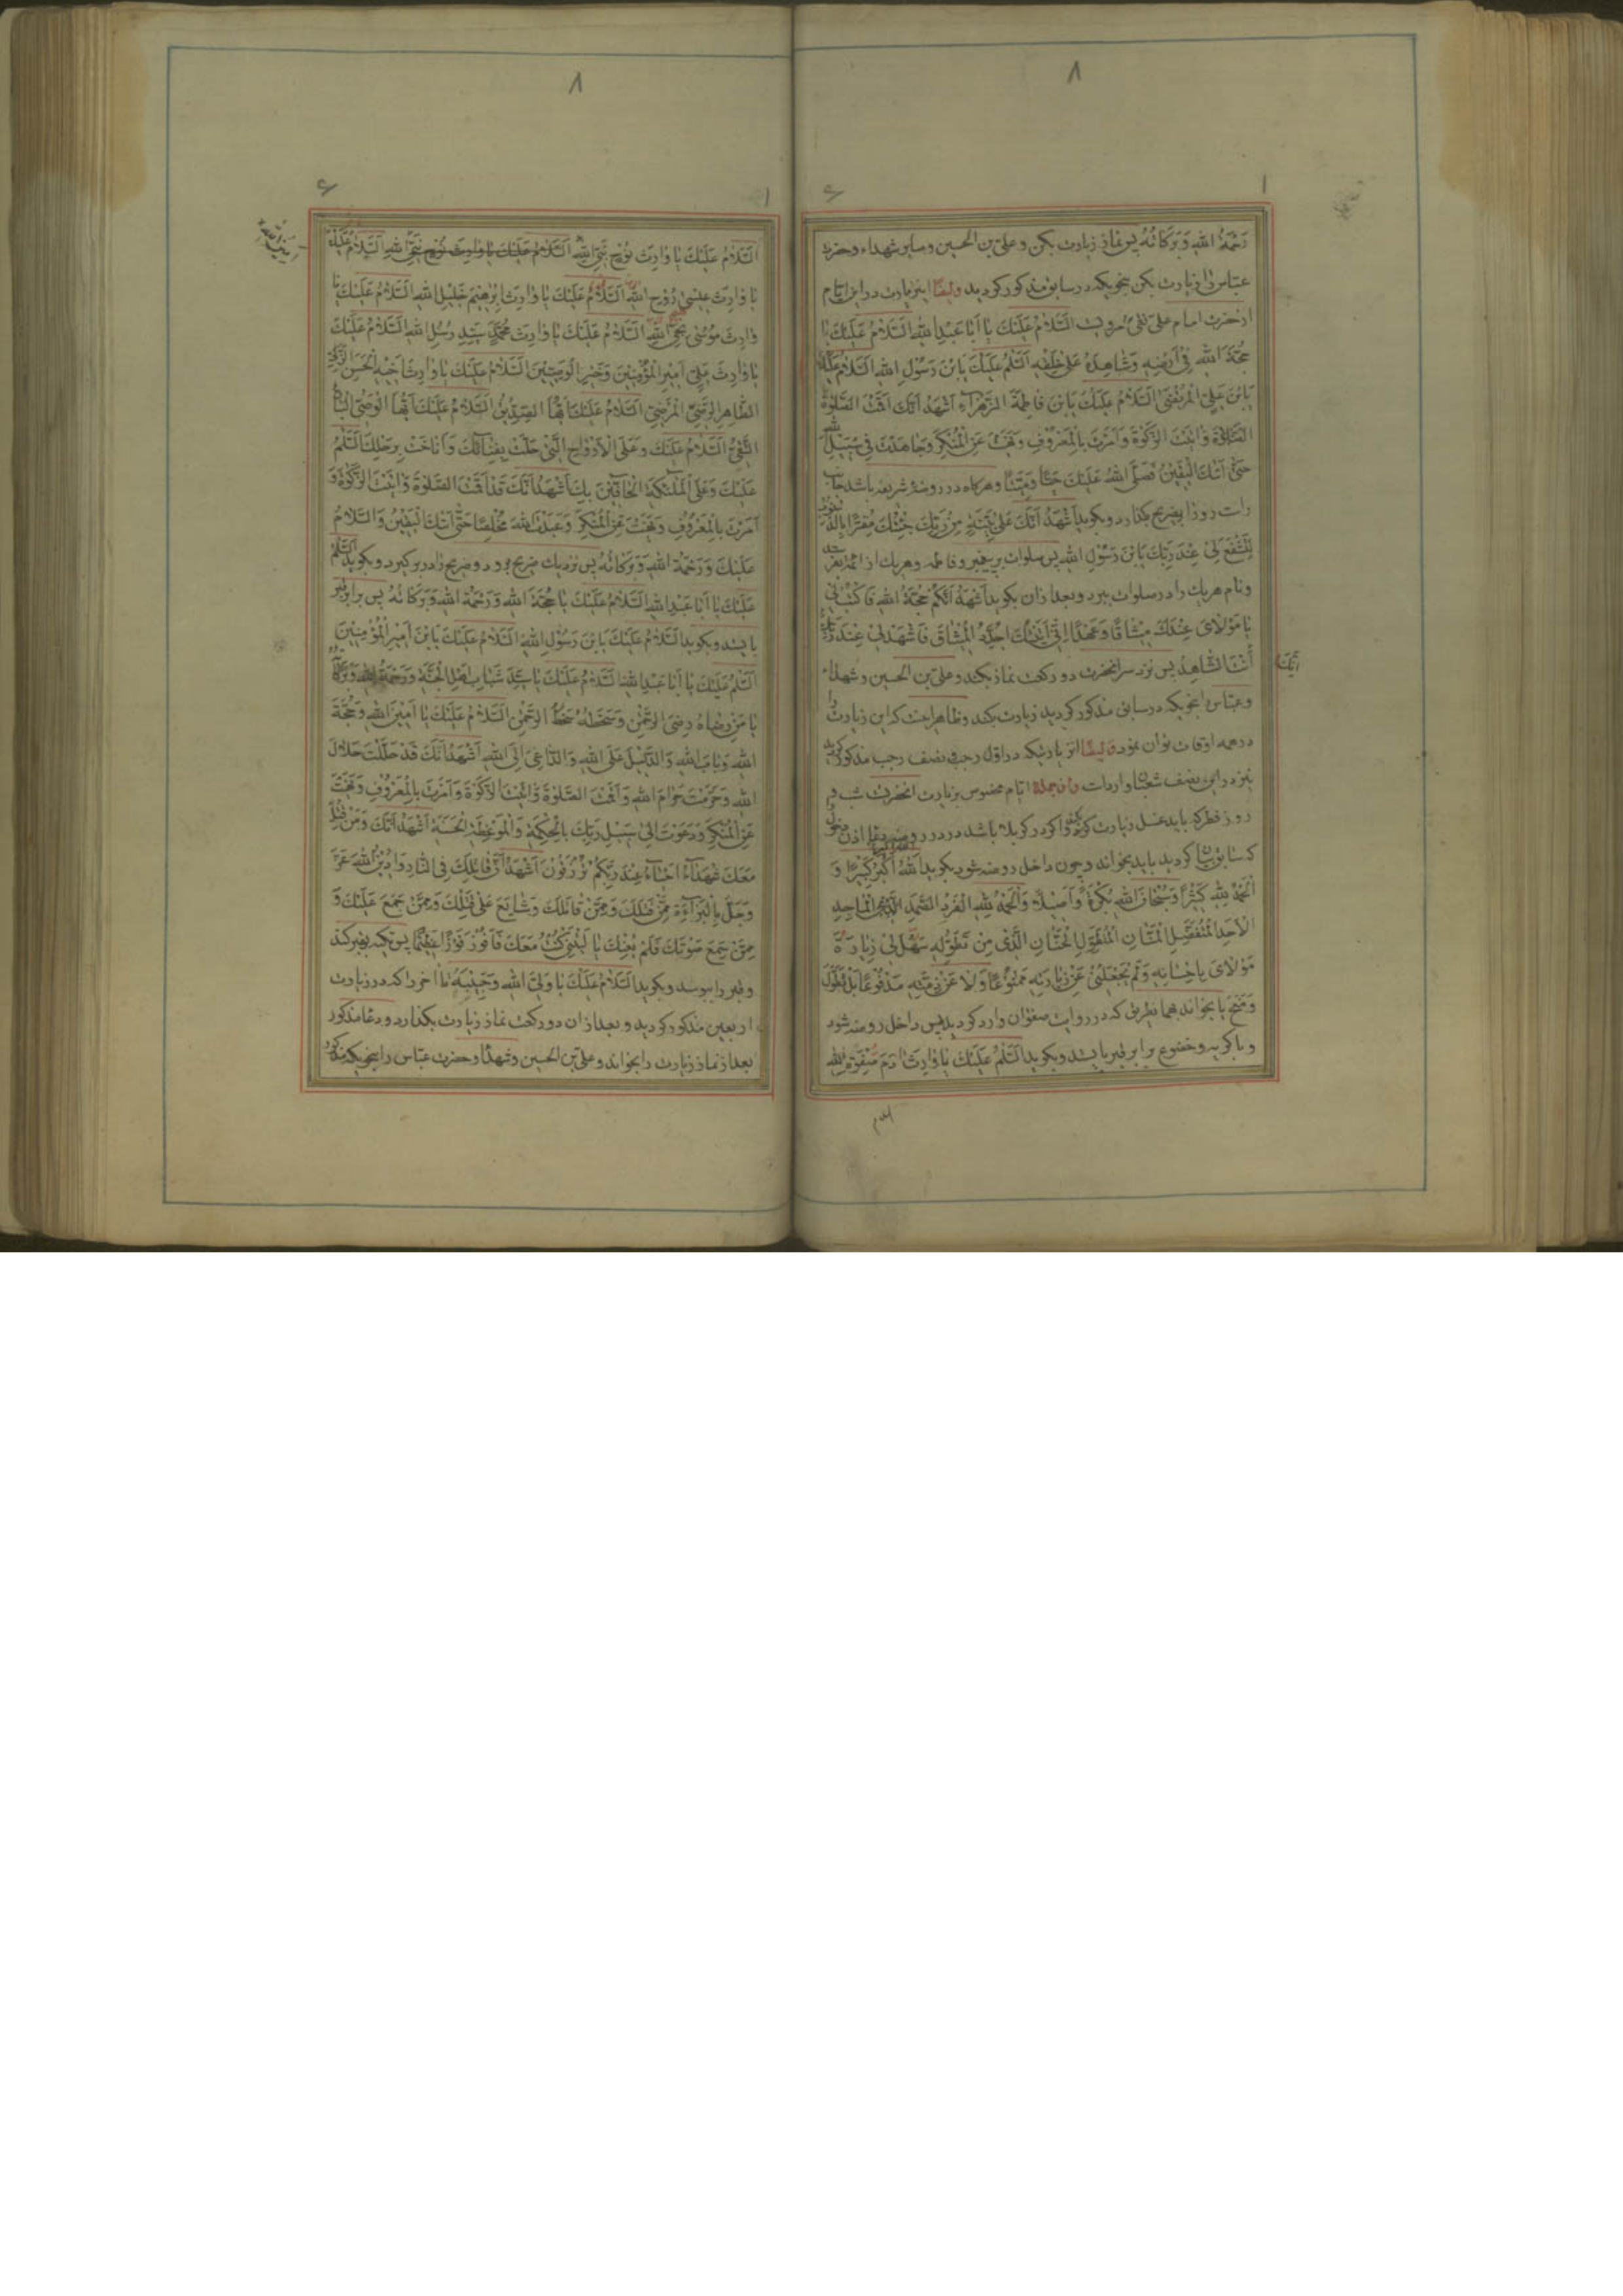 رَحْمَةُ اللهِ وَبَرَكَاتُهُ پس نماز زیارت بکن و علی بن الحسین و سایر شهداء و حضرت
عباس را زیارت بکن بنحویکه در سابق مذکور گردید وایضًا این زیارت در این ایام
از حضرت امام علی نقی مرویست اَلسَّلَامُ عَلَيْكَ يَا اَبَا عَبْدِ اللهِ اَلسَّلَامُ عَلَيْكَ يَا
حُجَّةَ اللهِ فِي اَرْضِهِ وَشَاهِدَهُ عَلَى خَلْقِهِ اَلسَّلَمُ عَلَيْكَ يَابْنَ رَسُولِ اللهِ اَلسَّلَامُ عَلَيْكَ
يَابْنَ عَلِيِّ الْمُرْتَضَى اَلسَّلَامُ عَلَيْكَ يَابْنَ فَاطِمَةَ الزَّهْرَاءِ اَشْهَدُ اَنَّكَ اَقَمْتَ الصَّلوٰةَ
وَاٰتَيْتَ الزَّكوٰةَ وَاَمَرْتَ بِالْمَعْرُوفِ وَنَهَيْتَ عَنِ الْمُنْكَرِ وَجَاهَدْتَ فِي سَبِيلِ اللهِ
حَتّٰى اَتٰيكَ الْيَقِينُ فَصَلَّى اللهُ عَلَيْكَ حَيًّا وَمَيِّتًا و هرگاه در روضهٔ شریفه باشد جانب
راست رو را بضریح بگذارد و بگوید اَشْهَدُ اَنَّكَ عَلَى بَيِّنَةٍ مِنْ رَبِّكَ جِئْتُكَ مُقِرًّا بِالذُّنُوبِ
لِتَشْفَعَ لِي عِنْدَ رَبِّكَ يَابْنَ رَسُولِ اللهِ پس صلوات بر پیغمبر و فاطمه و هریک از ائمه بفرستد
و نام هریک را در صلوات ببرد و بعد از آن بگوید اَشْهَدُ اَنَّكُمْ حُجَّةُ اللهِ فَاكْتُبْ لِي
يَا مَوْلَايَ عِنْدَكَ مِيثَاقًا وَعَهْدًا اِنِّي اَتَيْتُكَ اُجَدِّدُ الْمِيثَاقَ فَاشْهَدْ لِي عِنْدَ رَبِّكَ
اِنَّكَ
اَنْتَ الشَّاهِدُ پس نزد سر آنحضرت دو رکعت نماز بکند و علی بن الحسین و شهداء
و عباس را بنحویکه در سابق مذکور گردید زیارت بکند و ظاهر اینست که این زیارت را
در همه اوقات توان نمود وایضًا آن زیارتیکه در اول رجب و نصف رجب مذکور گردید
نیز در این نصف شعبان وارد است وازجمله ایام مخصوص بزیارت آنحضرت شب و
روز فطر که باید غسل زیارت کرده و اگر در کربلا باشد در در روضه دعا اذن دخول
که سابق بیان گردید باید بخواند و چون داخل روضه شود بگوید اَللهُ اَكْبَرُ كَبِيرًا وَ
اَلْحَمْدُ لِلهِ كَثِيرًا وَسُبْحَانَ اللهِ بُكْرَةً وَاَصِيلًا وَالْحَمْدُ لِلهِ الْفَرْدِ الصَّمَدِ الْمَاجِدِ
الْاَحَدِ الْمُتَفَضِّلِ الْمَنَّانِ الْمُتَطَوِّلِ الْحَنَّانِ الَّذِي مِنْ تَطَوُّلِهِ سَهَّلَ لِي زِيَارَةَ
مَوْلَايَ بِاِحْسَانِهِ وَلَمْ يَجْعَلْنِي عَنْ زِيَارَتِهِ مَمْنُوعًا وَلَا عَنْ ذِمَّتِهِ مَدْفُوعًا بَلْ تَطَوَّلَ
وَمَنَحَ یا بخواند بهما نطریق که در روایت صفوان وارد گردید پس داخل روضه شود
و با گریه و خضوع برابر قبر بایستد و بگوید اَلسَّلَمُ عَلَيْكَ يَا وَارِثَ اٰدَمَ صَفْوَةِ اللهِ
السلام
۸
اَلسَّلَامُ عَلَيْكَ يَا وَارِثَ نُوحٍ نَبِيِّ اللهِ اَلسَّلَامُ عَلَيْكَ يَا وَارِثَ نُوحٍ نَبِيِّ اللهِ اَلسَّلَامُ عَلَيْكَ
يَا وَارِثَ عِيسٰى رُوحِ اللهِ اَلسَّلَامُ عَلَيْكَ يَا وَارِثَ اِبْرٰهِيمَ خَلِيلِ اللهِ اَلسَّلَامُ عَلَيْكَ يَا
وَارِثَ مُوسٰى نَجِيِّ اللهِ اَلسَّلَامُ عَلَيْكَ يَا وَارِثَ مُحَمَّدٍ سَيِّدِ رُسُلِ اللهِ اَلسَّلَامُ عَلَيْكَ
يَا وَارِثَ عَلِيٍّ اَمِيرِ الْمُؤْمِنِينَ وَخَيْرِ الْوَصِيِّينَ اَلسَّلَامُ عَلَيْكَ يَا وَارِثَ اَخِيهِ الْحَسَنِ الزَّكِيِّ
الطَّاهِرِ الرَّضِيِّ الْمَرْضِيِّ اَلسَّلَامُ عَلَيْكَ اَيُّهَا الصِّدِّيقُ اَلسَّلَامُ عَلَيْكَ اَيُّهَا الْوَصِيُّ الْبَارُّ
التَّقِيُّ اَلسَّلَامُ عَلَيْكَ وَعَلَى الْاَرْوَاحِ الَّتِي حَلَّتْ بِفِنَائِكَ وَاَنَاخَتْ بِرَحْلِكَ اَلسَّلَمُ
عَلَيْكَ وَعَلَى الْمَلٰئِكَةِ الْحَافِّينَ بِكَ اَشْهَدُ اَنَّكَ قَدْ اَقَمْتَ الصَّلوٰةَ وَاٰتَيْتَ الزَّكوٰةَ وَ
اَمَرْتَ بِالْمَعْرُوفِ وَنَهَيْتَ عَنِ الْمُنْكَرِ وَعَبَدْتَ اللهَ مُخْلِصًا حَتّٰى اَتٰيكَ الْيَقِينُ وَالسَّلَامُ
عَلَيْكَ وَرَحْمَةُ اللهِ وَبَرَكَاتُهُ پس نزدیک ضریح برود و ضریح را در بر گیرد و بگوید اَلسَّلَمُ
عَلَيْكَ يَا اَبَا عَبْدِ اللهِ اَلسَّلَامُ عَلَيْكَ يَا حُجَّةَ اللهِ وَرَحْمَةُ اللهِ وَبَرَكَاتُهُ پس برابر قبر
بایستد و بگوید اَلسَّلَامُ عَلَيْكَ يَابْنَ رَسُولِ اللهِ اَلسَّلَامُ عَلَيْكَ يَابْنَ اَمِيرِ الْمُؤْمِنِينَ
اَلسَّلَمُ عَلَيْكَ يَا اَبَا عَبْدِ اللهِ اَلسَّلَامُ عَلَيْكَ يَا سَيِّدَ شَبَابِ اَهْلِ الْجَنَّةِ وَرَحْمَةُ اللهِ وَبَرَكَاتُهُ
يَا مَنْ رِضَاهُ رِضَى الرَّحْمٰنِ وَسَخَطُهُ سَخَطُ الرَّحْمٰنِ اَلسَّلَامُ عَلَيْكَ يَا اَمِينَ اللهِ وَحُجَّةَ
اللهِ وَبَابَ اللهِ وَالدَّلِيلَ عَلَى اللهِ وَالدَّاعِيَ اِلَى اللهِ اَشْهَدُ اَنَّكَ قَدْ حَلَّلْتَ حَلَالَ
اللهِ وَحَرَّمْتَ حَرَامَ اللهِ وَاَقَمْتَ الصَّلوٰةَ وَاٰتَيْتَ الزَّكوٰةَ وَاَمَرْتَ بِالْمَعْرُوفِ وَنَهَيْتَ
عَنِ الْمُنْكَرِ وَدَعَوْتَ اِلٰى سَبِيلِ رَبِّكَ بِالْحِكْمَةِ وَالْمَوْعِظَةِ الْحَسَنَةِ اَشْهَدُ اَنَّكَ وَمَنْ قُتِلَ
مَعَكَ شُهَدَاءُ اَحْيَاءٌ عِنْدَ رَبِّكُمْ تُرْزَقُونَ اَشْهَدُ اَنَّ قَاتِلَكَ فِي النَّارِ وَاَدِينُ اللهَ عَزَّ
وَجَلَّ بِالْبَرَاءَةِ مِمَّنْ قَتَلَكَ وَمِمَّنْ قَاتَلَكَ وَشَايَعَ عَلٰى قَتْلِكَ وَمِمَّنْ جَمَعَ عَلَيْكَ وَ
مِمَّنْ سَمِعَ صَوْتَكَ فَلَمْ يُعِنْكَ يَا لَيْتَنِي كُنْتُ مَعَكَ فَاَفُوزَ فَوْزًا عَظِيمًا پس تکیه بقبر کند
و قبر را ببوسد و بگوید اَلسَّلَامُ عَلَيْكَ يَا وَلِيَّ اللهِ وَحَبِيبَهُ تا آخر را که در زیارت
اربعین مذکور گردید و بعد از آن دو رکعت نماز زیارت بگذارد و دعا مذکور
بعد از نماز زیارت را بخواند و علی بن الحسین و شهداء و حضرت عباس را بنحویکه مذکور
۸